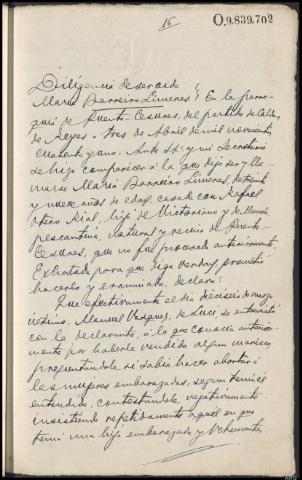 16
O,9.839.702
Diligencia de ser oida
Maria Barreiro Limeres. En la parro-
quia de Puente Cesures, del partido de Caldas
de Reyes a tres de Abril de mil novecientos
cuarenta y uno. Ante Sª y mi Secretario
se hizo comparecer a la que dijo ser y lla-
marse Maria Barreiro Limeres, de treinta
y nueve años de edad, casada con Rafael
Otero Rial, hija de Victoriano y de Manuela,
pescantina, natural y vecina de Puente
Cesures, que no fue procesada anteriormente.
Exhortada para que diga verdad, prometió
hacerlo y examinada, declara:
Que efectivamente el dia dieciseis de marzo
ultimo, Manuel Vazquez, de se entrevistó
con la declarante, a la que conocia anterior-
mente por haberle vendido algun marisco,
preguntandole si sabia hacer abortar á
las mujeres embarazadas, segun tenia él
entendido, contestandole negativamente
insistiendo repetidamente aquel en que
tenia una hija embarazada y